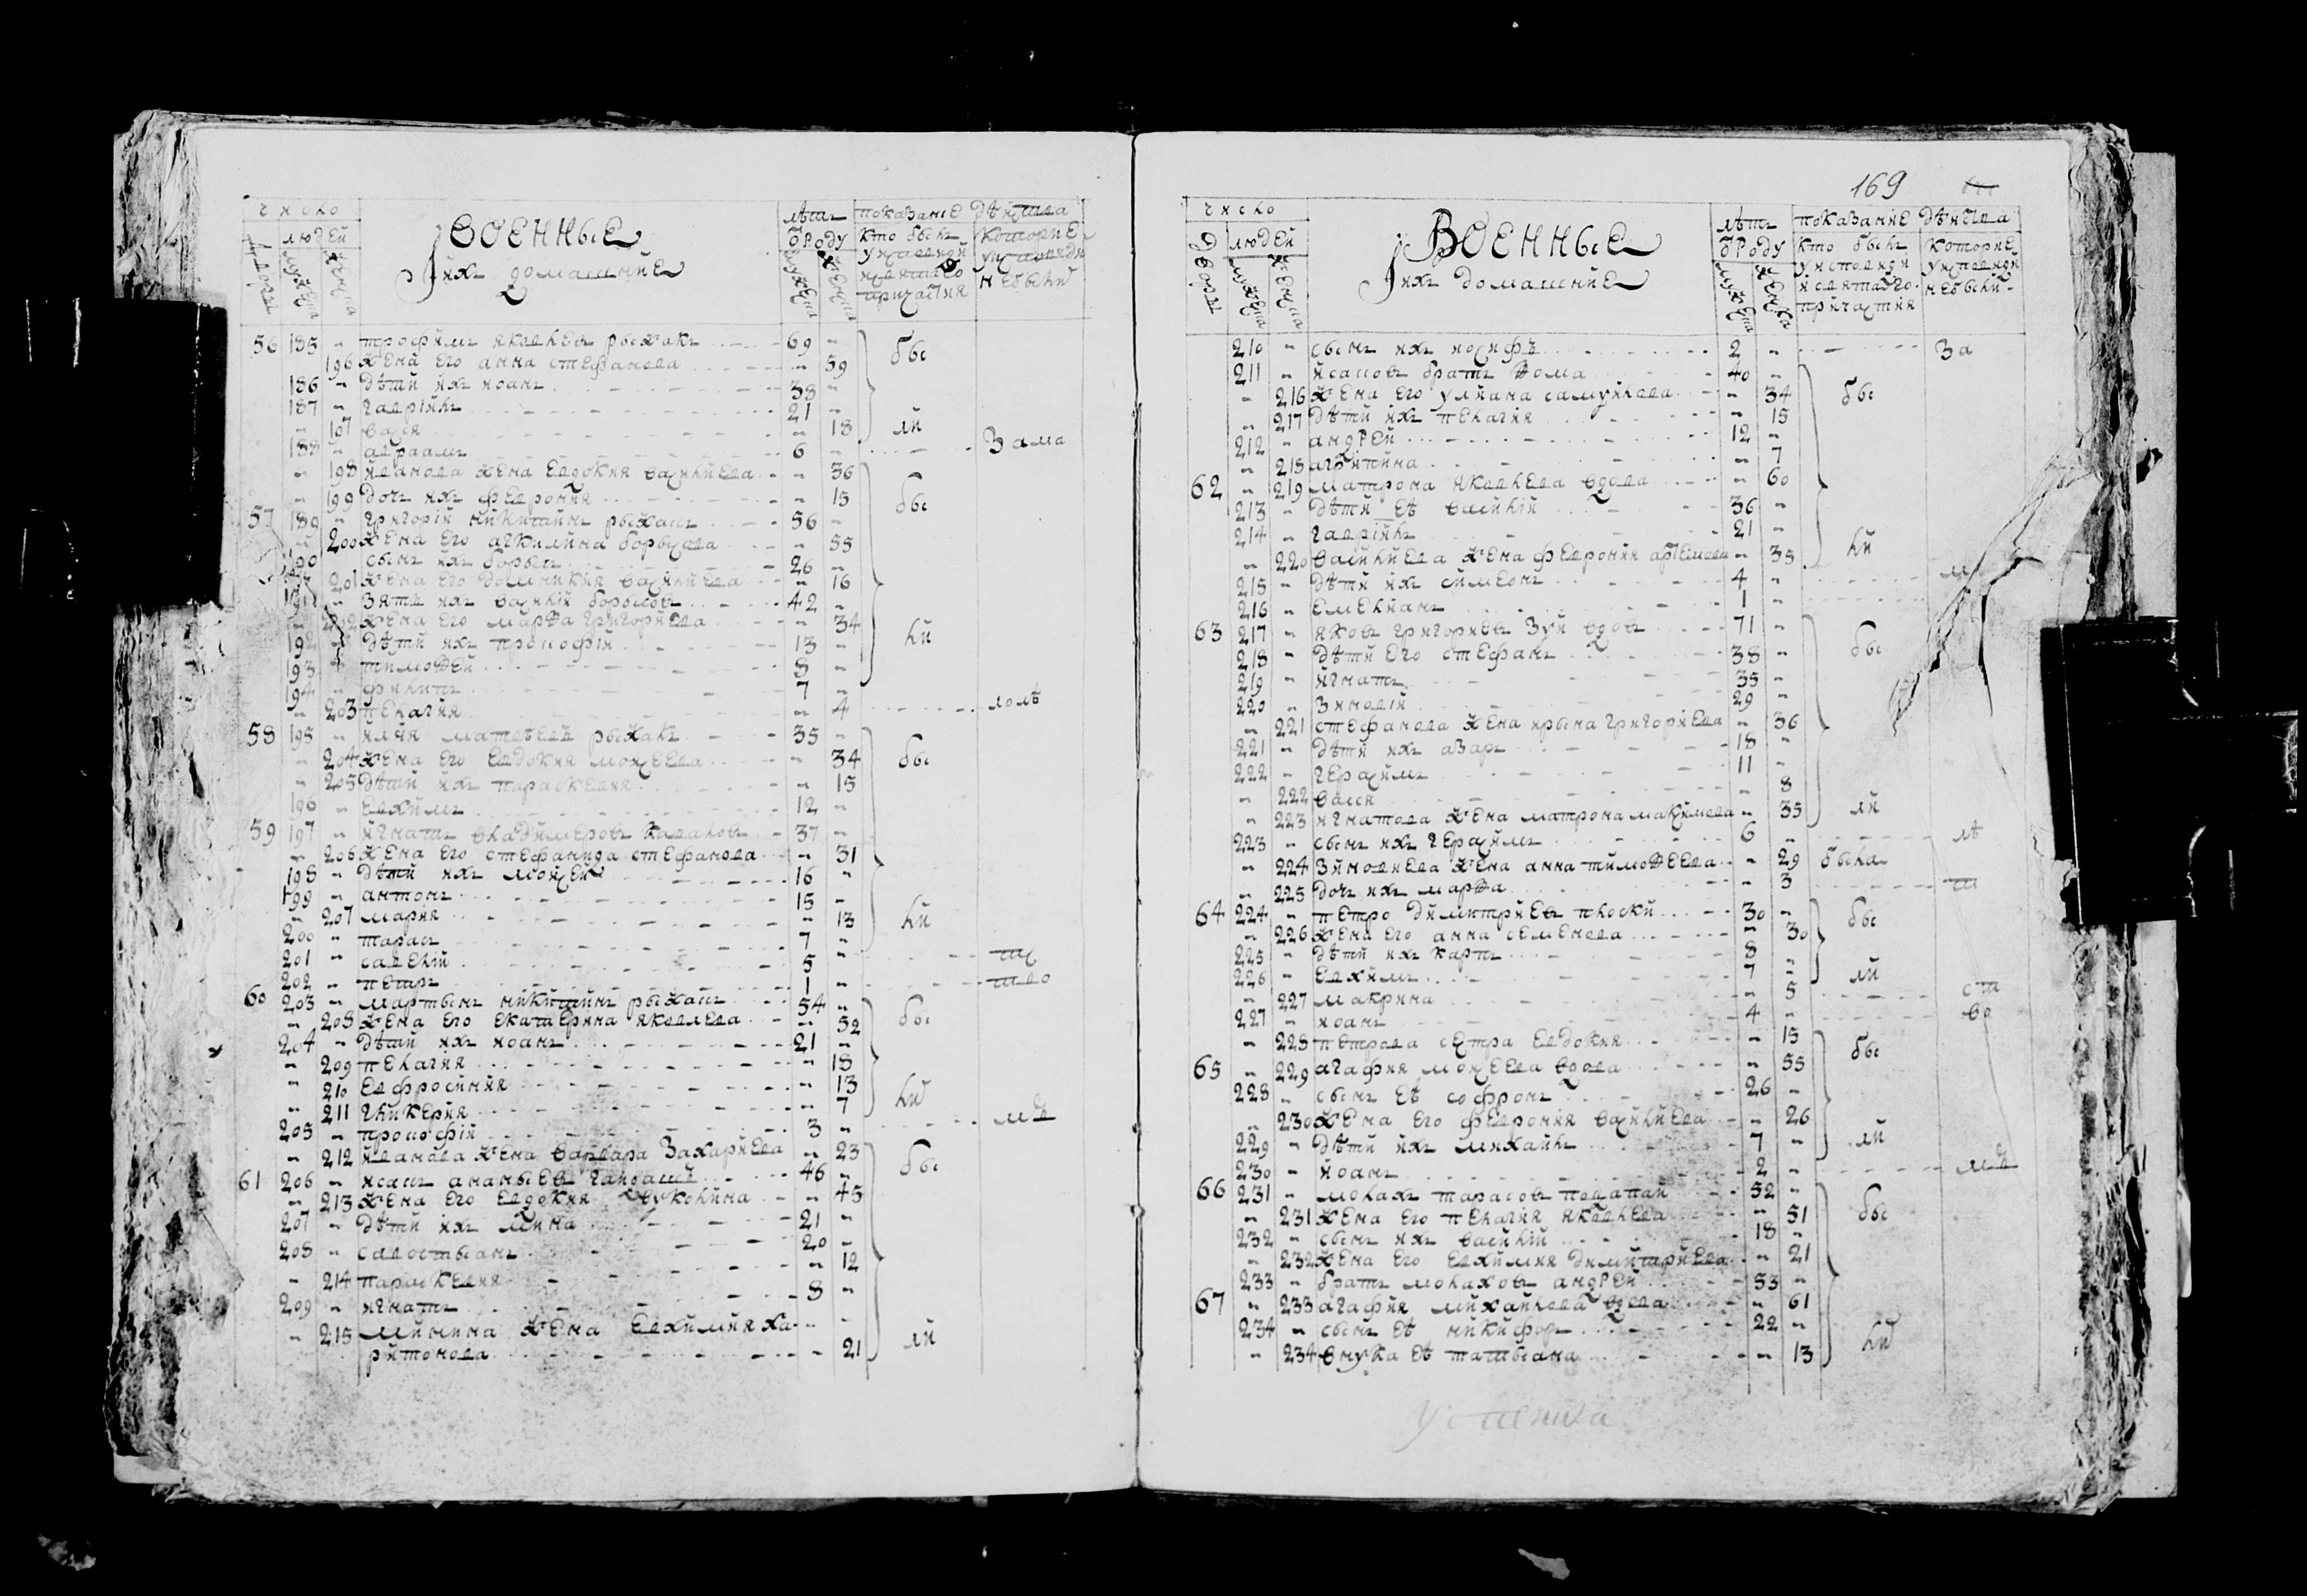 число
людей
Военные
лѣтъ
показаніе дѣйства
дворы
мужеска
женска
ихъ домашние
ѿ роду
кто былъ
у исповѣди
и святаго
причастия
которие
у исповѣди
не были
56 185 - трофимъ яковлевъ рыжакъ 69 - бы
196 жена его анна стефанова - 59
186 - дѣти ихъ иоанъ 38 -
187 - гавріилъ 21 -
- 107 васса - 18 ли
188 - авраамъ 6 - за ма
- 198 иванова жена евдокия василиева - 36
- 199 дочъ ихъ феврония - 15 бы
57 189 - григорій никитинъ рыжакъ 56 -
- 200 жена его акилина борысова - 55
190 сынъ ихъ борысъ 26 -
201 жена его домникия василиева - 16
191 - зять ихъ василій борысовъ 42 -
- 202 жена его марѳа григориева - 34
192 - дѣти ихъ прокофій 13 - ли
193 - тимоѳей 8 -
194 - филипъ 7 -
- 203 пелагия - 4 лолѣ
58 195 - илия матвѣевъ рыжакъ 35 -
- 204 жена его евдокия моисеева - 34 бы
- 205 дѣти ихъ параскевия - 15
196 - евхимъ 12 -
59 197 - игнатъ владимеровъ 37 -
- 206 жена его стефанида стефанова - 31
198 - дѣти ихъ моисей 16 -
199 - антонъ 15 -
- 207 мария - 13 ли
200 - тарасъ 7 -
201 - савелій 5 -
202 - петръ 1 - тво
60 203 - мартынъ никитинъ рыжакъ 54 -
- 208 жена его екатерина яковлева - 52 бы
204 - дѣти ихъ иоанъ 21 -
- 209 пелагия - 18
- 210 евфросиния - 13
- 211 гликерия - 7 ли
205 - прокофій 3 -
- 212 иванова жена варвара захариева - 23
61 206 - исакъ ананыевъ 46 - бы
- 213 жена его евдокия - 45
207 - дѣти ихъ мина 21 -
208 - савостыанъ 20 -
- 214 параскевия - 12
209 - игнатъ 8 -
- 215 минина жена евхимия ха-
ритонова - 21 ли
169
число
людей
Военные
лѣтъ
показание дѣйства
дворы
мужеска
женска
ихъ домашние
ѿ роду
кто былъ
у исповѣди
и святаго
причастия
которие
у исповѣди
не были
210 - сынъ ихъ иосифъ 2 - за
211 - исаковъ братъ ѳома 40 -
- 216 жена его улиана самуилова - 34 бы
- 217 дѣти ихъ пелагия - 15
212 - андрей 12 -
- 218 агрипина - 7
62 - 219 матрона яковлева вдова - 60
213 - дѣти еѣ василій 36 -
214 - гавріилъ 21 -
- 220 василиева жена феврония артемова - 35 ли
215 - дѣти ихъ симеонъ 4 -
216 - емелианъ 1 -
63 217 - яковъ григориевъ зуй вдовъ 71 -
218 - дѣти его стефанъ 38 - бы
219 - игнатъ 35 -
220 - зиновій 29 -
- 221 стефанова жена ирына григориева - 36
221 - дѣти ихъ азаръ 18 -
222 - герасимъ 11 -
- 222 васса - 8
- 223 игнатова жена матрона максимова - 35 ли
223 - сынъ ихъ герасимъ 6 - лѣ
- 224 зиновиева жена анна тимоѳеева - 29 была
- 225 дочъ ихъ марѳа - 3
64 224 - петро димитриевъ плоски 30 -
- 226 жена его анна семенова - 30 бы
225 - дѣти ихъ карпъ 8 -
226 - евхимъ 7 - ли
- 227 макрина - 5 ст
227 - иоанъ 4 - во
- 228 петрова сестра евдокия - 15
65 - 229 агафия моисеева вдова - 55 бы
228 - сынъ еѣ софронъ 26 -
- 230 жена его феврония василиева - 26
229 - дѣти ихъ михаилъ 7 - ли
230 - иоанъ 2 -
66 231 - малахъ тарасовъ потапай 52 -
- 231 жена его пелагия яковлева - 51 бы
232 - сынъ ихъ василій 18 -
- 232 жена его евхимия димитриева - 21
233 - братъ малаховъ андрей 53 -
67 - 233 агафия михаилова вдова - 61
234 - сынъ еѣ никифоръ 22 -
- 234 внука еѣ татыана - 13 ли